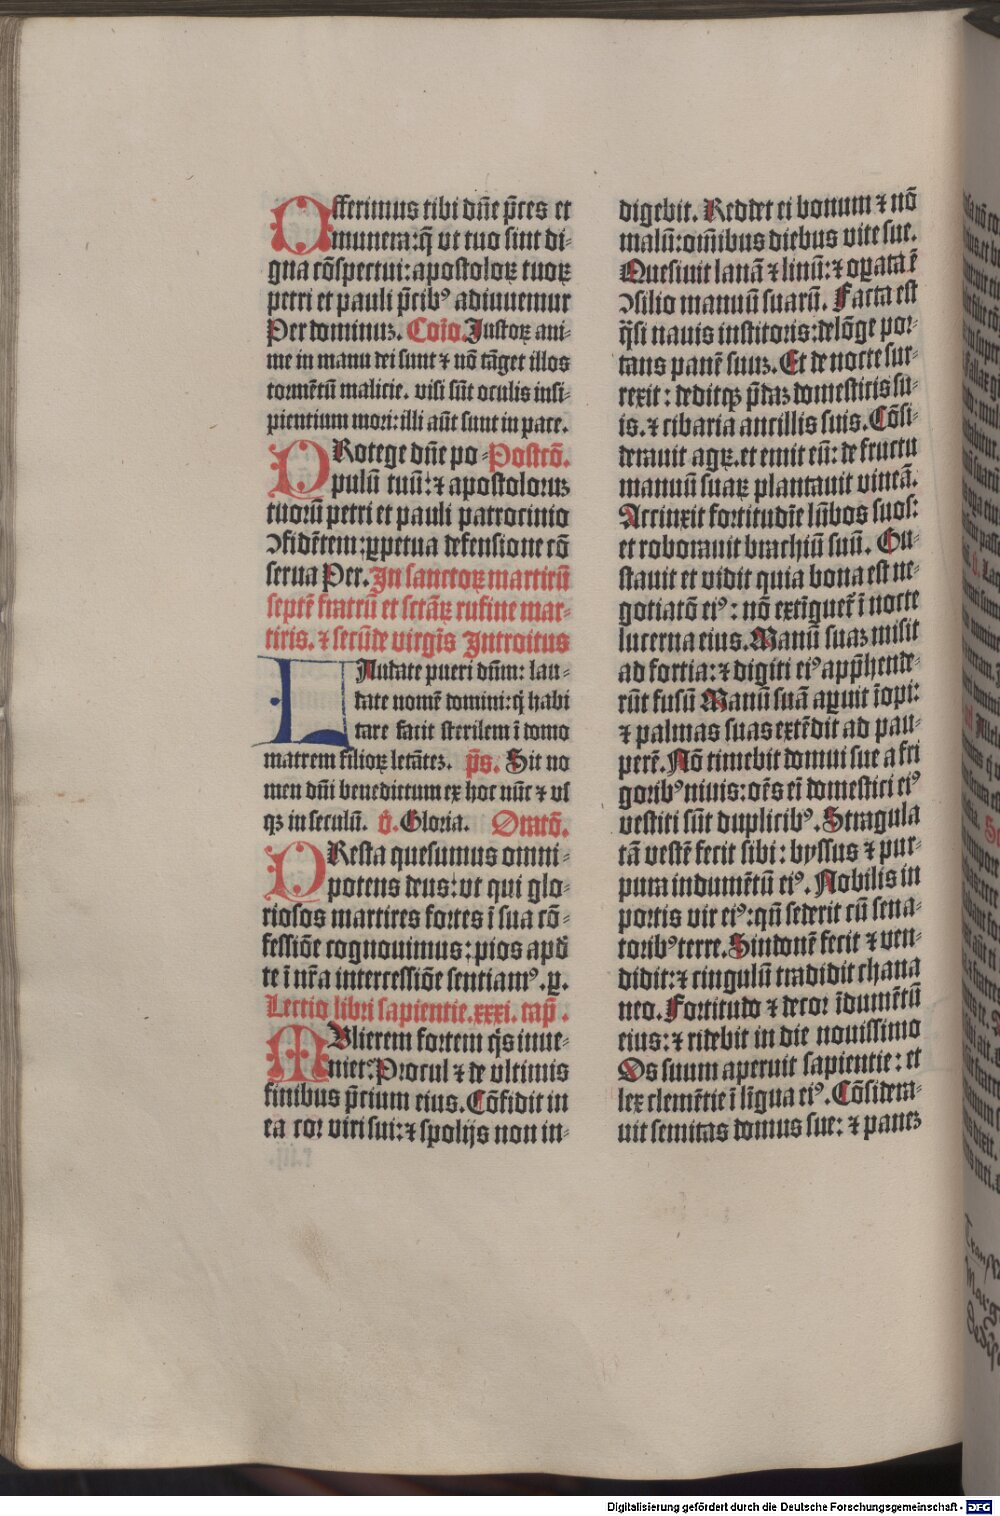 Offerimus tibi dn̄e p̄ces et
munera: q̄ ut tuo sint di-
gna cōspectui: apostoloꝝ tuoꝝ
petri et pauli p̄cibꝰ adiuuemur
Per dominuꝫ. Cōio. Justoꝝ ani-
me in manu dei sunt ⁊ nō tāget illos
tormētū malicie. visi sūt oculis insi-
pientium mori: illi aūt sunt in pace.
PRotege dn̄e po- Postcō.
pulū tuū: ⁊ apostoloruꝫ
tuorū petri et pauli patrocinio
ↄfidētem: ꝑpetua defensione cō
serua Per. In sanctoꝝ martirū
septē fratrū et sctāꝝ rufine mar-
tiris. ⁊ secūde virgīs Introitus
LAudate pueri dn̄m: lau-
date nomē domini: q̄ habi
tare facit sterilem ī domo
matrem filioꝝ letāteꝫ. p̄s. Sit no
men dn̄i benedictum ex hoc nūc ⁊ us
qꝫ in seculū. v̄. Gloria. Oratō.
PResta quesumus omni-
potens deus: ut qui glo-
riosos martires fortes ī sua cō-
fessiōe cognouimus: pios apd̄
te ī nr̄a intercessiōe sentiamꝰ. ꝑ.
Lectio libri sapientie. xxxi. cap̄.
MUlierem fortem q̄s inue-
niet: Procul ⁊ de ultimis
finibus p̄cium eius. Cōfidit in
eā cor viri sui: ⁊ spolijs non in-
digebit. Reddet ei bonum ⁊ nō
malū: om̄ibus diebus vite sue.
Quesiuit lanā ⁊ linū: ⁊ oꝑata ē
ↄsilio manuū suarū. Facta est
q̄si nauis institoris: de lōge por-
tans panē suuꝫ. Et de nocte sur-
rexit: deditqꝫ p̄daꝫ domesticis su-
is. ⁊ cibaria ancillis suis. Cōsi-
derauit agꝝ. et emit eū: de fructu
manuū suaꝝ plantauit vineā.
Accinxit fortitudīe lūbos suos:
et roborauit brachiū suū. Gu-
stauit et vidit quia bona est ne-
gotiatō eiꝰ: nō extīguet̄ ī nocte
lucerna eius. Manū suaꝫ misit
ad fortia: ⁊ digiti eiꝰ app̄hende-
rūt fusū Manū suā aꝑuit īopi:
⁊ palmas suas extēdit ad pau-
perē. Nō timebit domui sue a fri
goribꝰ niuis: oēs eī domestici eiꝰ
vestiti sūt duplicibꝰ. Stragula
tā vestē fecit sibi: byssus ⁊ pur-
pura indumētū eiꝰ. Nobilis in
portis vir eiꝰ: qn̄ sederit cū sena-
toribꝰ terre. Sindonē fecit ⁊ ven-
didit: ⁊ cingulū tradidit chana
neo. Fortitudo ⁊ decor īdumētū
eius: ⁊ ridebit in die nouissimo
Os suum aperuit sapientie: et
lex clemētie ī līgua eiꝰ. Cōsidera-
uit semitas domus sue: ⁊ paneꝫ
Digitalisierung gefördert durch die Deutsche Forschungsgemeinschaft - DFG